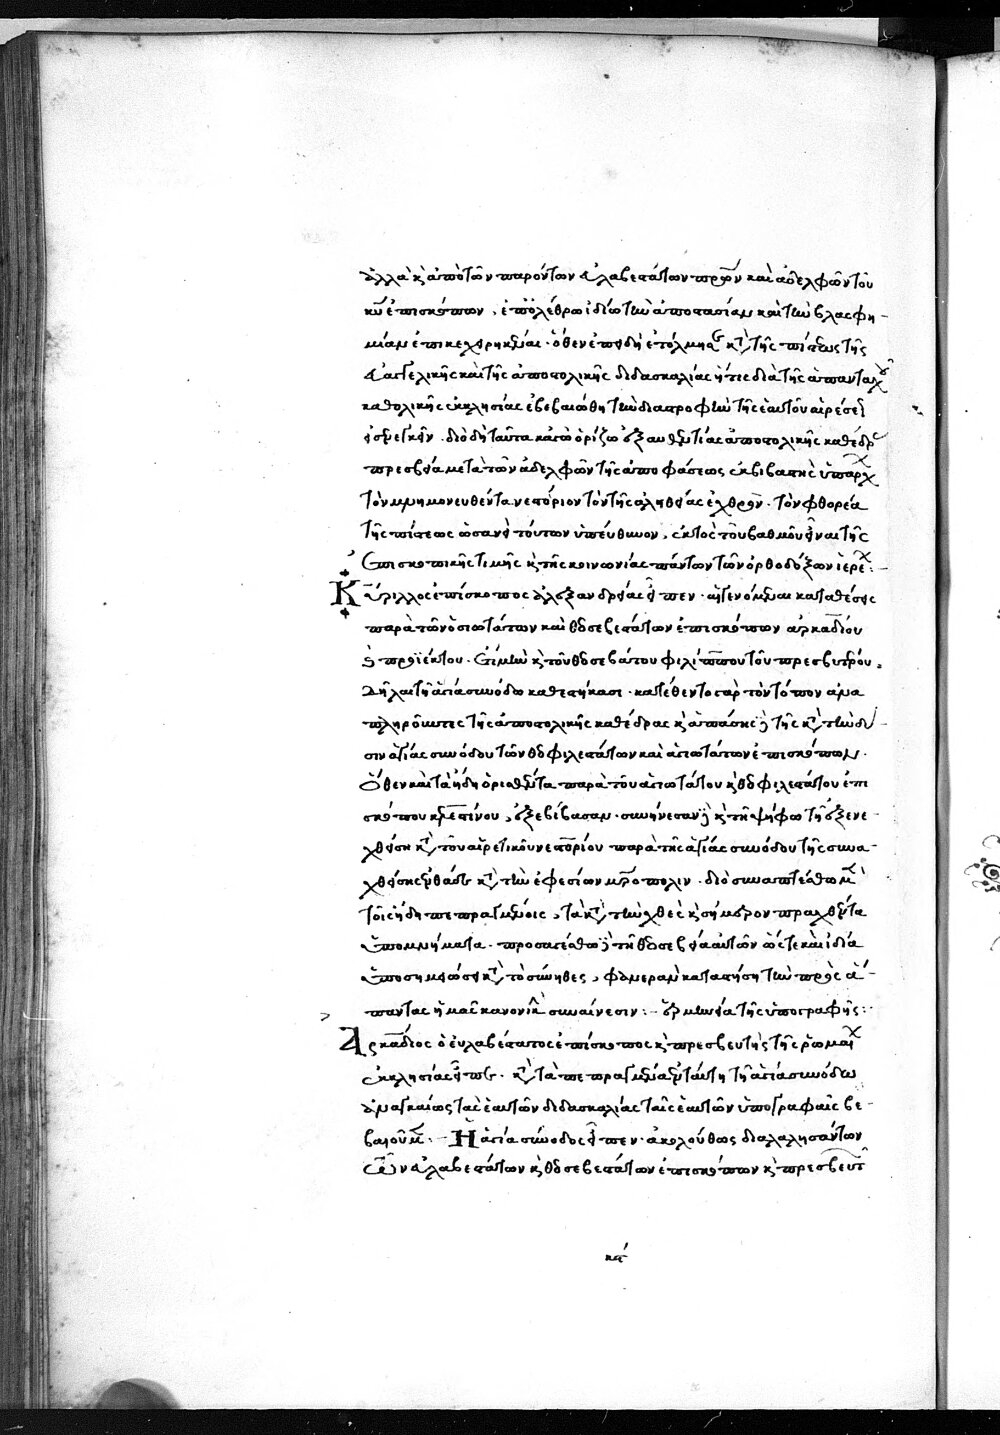 ἀλλὰ κ̀ ἀπὸ τῶν παρόντων εὐλαβεστάτων πρων καὶ ἀδελφῶν τοῦ
κυ ἐπισκόπων, ἐπ' ὀλέθρω ἰδίω τὴν ἀποστασίαν καὶ τὴν βλασφη-
μίαν ἐπικεχειρηκέναι. ὅθεν ἐπειδὴ ἐτόλμησε κτ τῆς πίστεως τῆς
εὐαγγελικῆς καὶ τῆς ἀποστολικῆς διδασκαλίας ἥτις διὰ τῆς ἁπανταχοῦ
καθολικῆς ἐκκλησίας ἐβεβαιώθη τὴν διαστροφὴν τῆς ἑαυτοῦ αἱρέσεως
εἰσενεγκεῖν. διὸ δὴ ταῦτα κἀγὼ ὁρίζω ἐξ αὐθεντίας ἀποστολικῆς καθέδρας
πρεσβεία μετὰ τῶν ἀδελφῶν τῆς ἀποφάσεως ἐκβιβαστὴς ὑπάρχ
τὸν μνημονευθέντα νεστόριον τὸν τῆς ἀληθείας ἐχθρὸν. τὸν φθορέα
τῆς πίστεως ὡσανεὶ τούτων ὑπεύθυνον, ἐκτὸς τοῦ βαθμοῦ εἶναι τῆς
ἐπισκοπικῆς τιμῆς κ̀ τῆς κοινωνίας πάντων τῶν ὀρθοδόξων ἱερε:-
Κύριλλος ἐπίσκοπος ἀλεξανδρείας εἶπεν. αἱ γενόμεναι καταθέσεις
παρὰ τῶν ὁσιωτάτων καὶ θεοσεβεστάτων ἐπισκόπων ἀρκαδίου
κ̀ προϊέκτου. ἔτι μὴν κ̀ τοῦ θεοσεβεστάτου φιλίππου τοῦ πρεσβυτέρου.
δῆλαι τῆ ἁγία συνόδω καθεστήκασι. κατέθεντο γὰρ τὸν τόπον ἀνα
πληροῦντες τῆς ἀποστολικῆς καθέδρας κ̀ ἁπάσης δὲ τῆς κτ τὴν δύ-
σιν ἁγίας συνόδου τῶν θεοφιλεστάτων καὶ ἁγιωτάτων ἐπισκόπων.
ὅθεν καὶ τὰ ἤδη ὁρισθέντα παρὰ τοῦ ἁγιωτάτου κ̀ θεοφιλεστάτου ἐπι
σκόπου κελεστίνου, ἐξεβίβασαν. συνήνεσαν δὲ κ̀ τῆ ψήφω τῆ ἐξενε-
χθείση κτ τοῦ αἱρετικοῦ νεστορίου παρὰ τῆς ἁγίας συνόδου τῆς συνα-
χθείσης ἐνθάδε κτ τὴν ἐφεσίων μητρόπολιν. διὸ συναπτέσθω μ
τοῖς ἤδη πεπραγμένοις, τὰ κτ τὴν χθὲς κ̀ σήμερον πραχθέντα
ὑπομνήματα. προσαγέσθω δὲ τῆ θεοσεβεία αὐτῶν ὥστε καὶ ἰδία
ὑποσημειώσει κτ τὸ σύνηθες, φανερὰν καταστῆσαι τὴν πρὸς ἅ-
παντας ἡμᾶς κανονικὴ συναίνεσιν:- ἑρμηνεία τῆς ὑπογραφῆς:
Ἀρκάδιος ὁ εὐλαβέστατος ἐπίσκοπος κ̀ πρεσβευτὴς τῆς ῥωμαι
ἐκκλησίας εἶπε. κτ τὰ πεπραγμένα ἐν ταύτη τῆ ἁγία συνόδω
ἀναγκαίως τὰς ἑαυτῶν διδασκαλίας ταῖς ἑαυτῶν ὑπογραφαῖς βε-
βαιοῦμ:- Ἡ ἁγία σύνοδος εἶπεν. ἀκολούθως διαλαλησάντων
τῶν εὐλαβεστάτων κ̀ θεοσεβεστάτων ἐπισκόπων κ̀ πρεσβευτ
κα